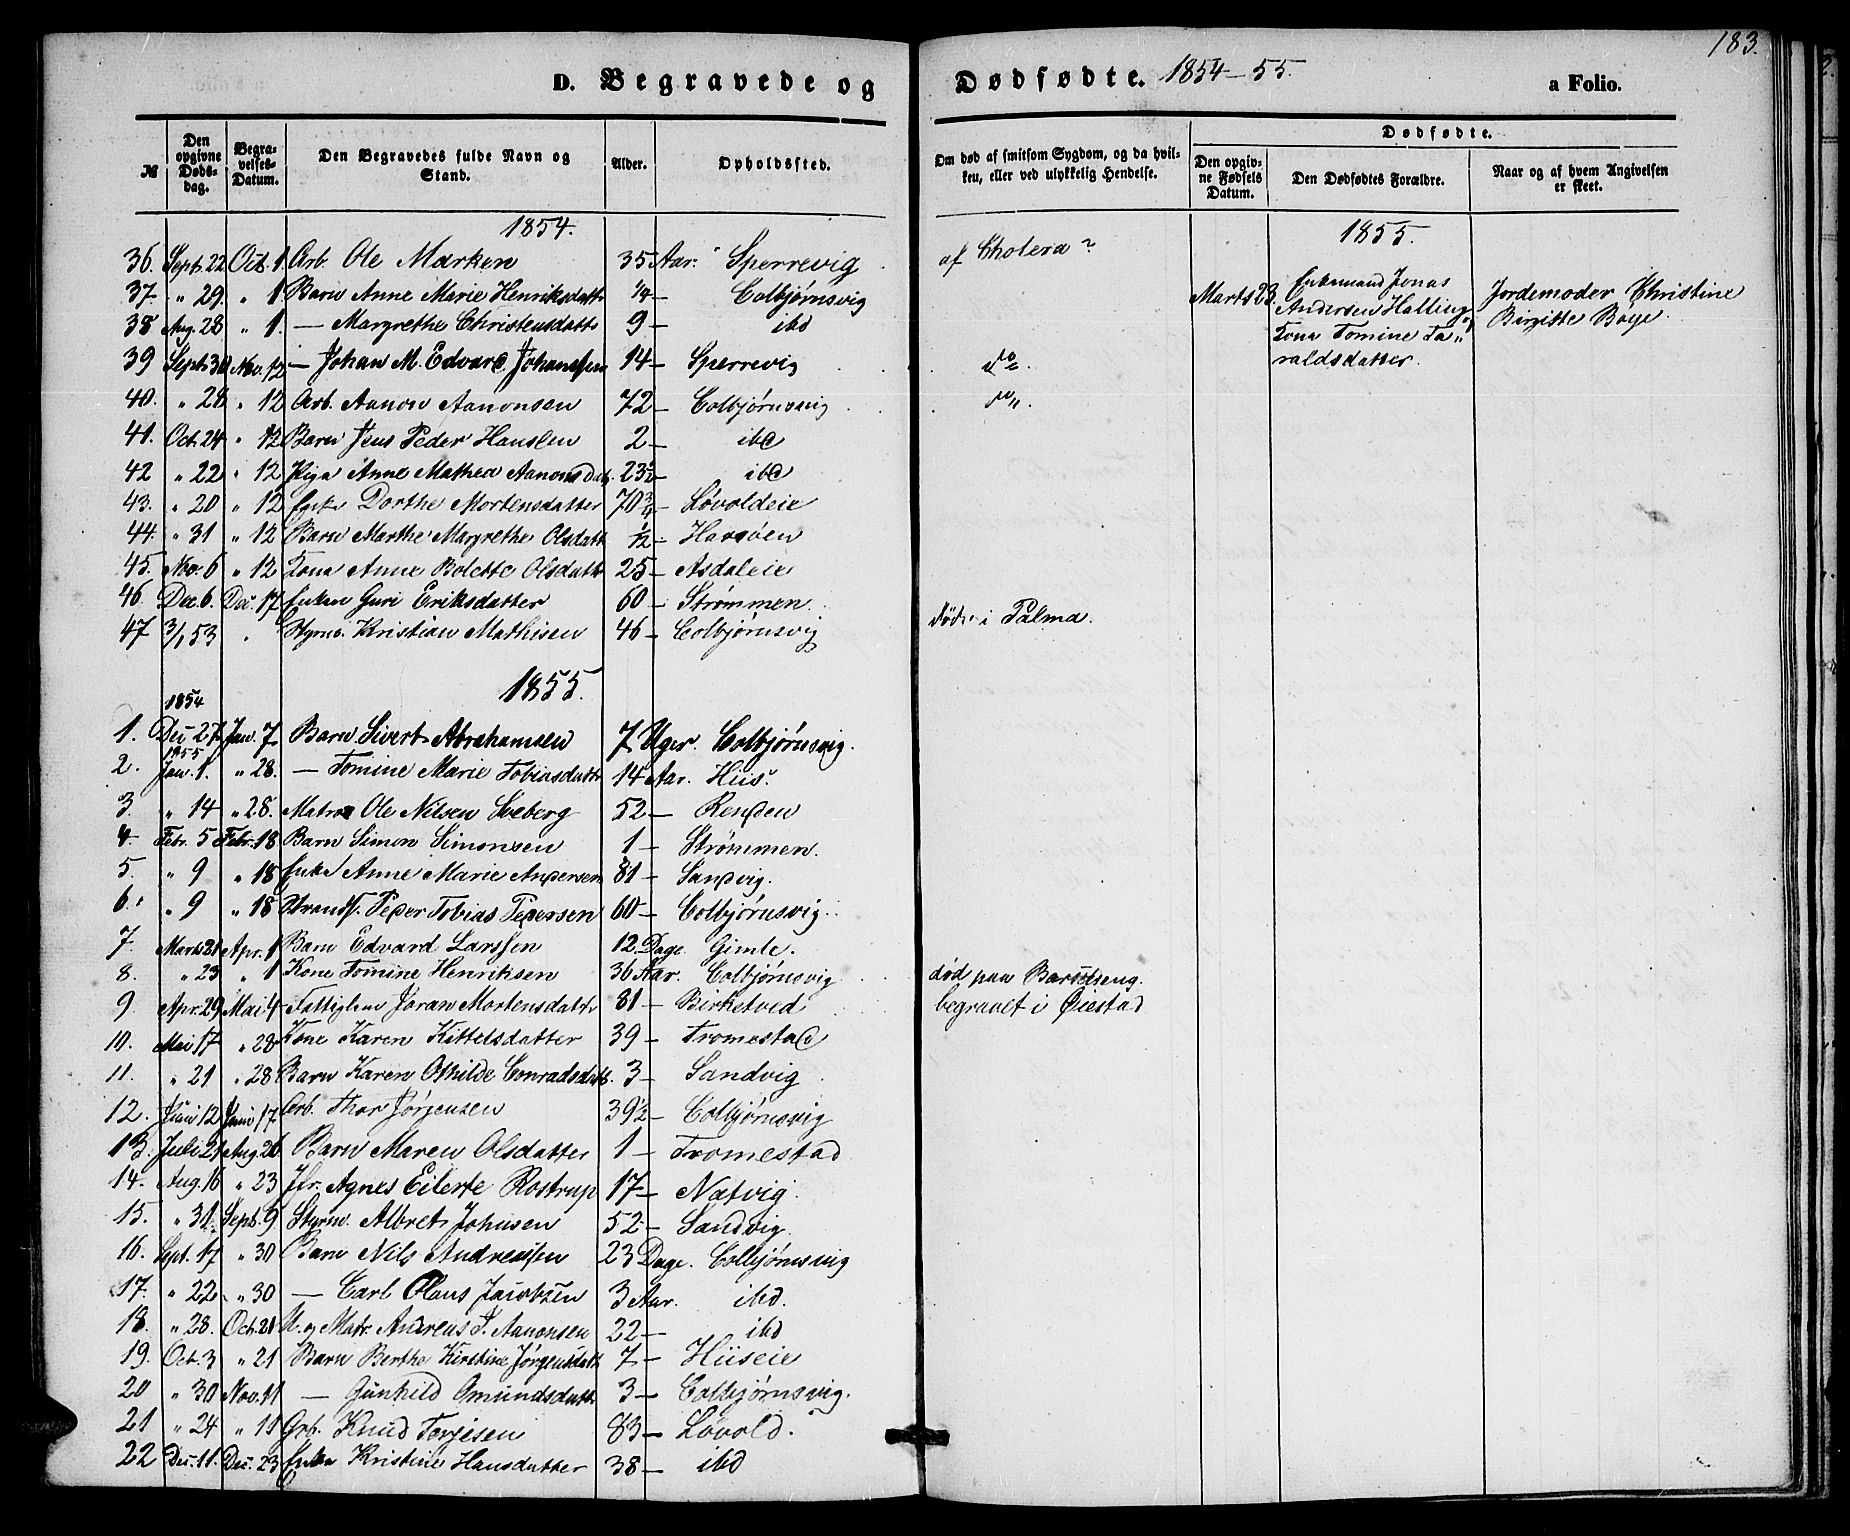 183.
D. Begravede og Dødfødte. 1854-55. a Folio.
№ Den opgivne Døds-dag. Begra-velses-Datum. Den Begravedes fulde Navn og Stand. Alder. Opholdssted. Om død af smitsom Sygdom, og da hvil-ken, eller ved ulykkelig Hendelse. Dødfødte.
Den opgiv-ne Fødsels Datum. Den Dødfødtes Forældre. Naar og af hvem Angivelsen er skeet.
1854. 1855.
36. Sept. 22 Oct. 1. Arb. Ole Marken 35 Aar. Sperrevig af Cholera
37. " 29. " 1. Barn Anne Marie Henriksdattr 1/4 — Colbjørnsvig
38 Aug. 28 " 1. — Margrethe Christensdattr 9 — ibd
39 Sept. 30 Nov. 12 — Johan M. Edvard Johanssen 14 — Sperrevig do
40. " 28 " 12 Arb. Aanon Aanonsen 72 — Colbjørnsvig do
41. Oct. 24 " 12 Barn Jens Peder Hansen 2 — ibd
42 " 22 " 12 Pige Anne Mathea Aanonsdat. 23½ — ibd
43. " 20 " 12 Enke Dorthe Mortensdatter 70¾ — Løvoldeie
44. " 31 " 12 Barn Marthe Margrethe Olsdatt 1/2 — Havsøen
45. Nov. 6 " 12 Kona Anne Bolette Olsdattr 25 — Asdaleie
46. Dec. 6. Dec. 17 Enken Guri Eriksdatter 60 — Strømmen
47 3/1 53 " Styrm. Kristian Mathisen 46 — Colbjørnsvig døde i Palma.
Marts 23. Enkemand Jonas Andersen Halling
Kona Tomine Ta-raldsdatter. Jordemoder Christine
Birgitte Boye.
1855.
1854
1. Dec. 27 Jan. 7 Barn Sivert Abrahamsen 7 Uger. Colbjørnsvig.
1855
2. Jan. 1. " 28. — Tomine Marie Tobiasdattr 14 Aar. Hiis.
3 " 14 " 28. Matros Ole Nilsen Soeberg 52 — Renden
4. Febr. 5 Febr. 18 Barn Simon Simonsen 1 — Strømmen.
5. " 9 " 18 Enke Anne Marie Andersen 81 — Sandvig.
6. " 9 " 18 Strands. Peder Tobias Pedersen 60 — Colbjørnsvig
7. Marts 21 Apr. 1 Barn Edvard Larssen 12 Dage Gimle.
8. " 23 " 1 Kone Tomine Henriksen 36 Aar. Colbjørnsvig død paa Barselseng.
9 Apr. 29 Mai 4 Fattiglem Jøran Mortensdattr 81 — Birketved begravet i Øiestad
10. Mai 17 " 28 Kone Karen Kittelsdatter 39 — Tromestad
11. " 21 " 28 Barn Karen Othilde Conradsdatt. 3 — Sandvig
12. Juni 12 Juni 17. Arb. Thor Jørgensen 39½ — Colbjørnsvig
13. Juli 21 Aug. 26 Barn Maren Olsdatter 1 — Tromestad
14. Aug. 16 " 23 Jfr. Agnes Eilerte Rostrup 17 — Natvig
15. " 31. Sept. 9 Styrm. Albret Johnsen 52 — Sandvig
16. Sept. 17 " 30 Barn Nils Andreassen 23 Dage. Colbjørnsvig
17. " 22 " 30 — Carl Olaus Jacobsen 3 Aar. ibd.
18. " 28. Oct. 21 U. og Matr. Andreas T. Aanonsen 22 — ibd
19. Oct. 3 " 21 Barn Berthe Kirstine Jørgensdatt 7 — Hiiseie
20 " 30 Nov. 11 — Gunhild Omundsdattr 3 — Colbjørnsvig.
21 " 24 " 11 Arb. Knud Terjesen 83 — Løvold.
22 Dec. 11. Dec. 23 Enke Kristine Hansdatter 38 — ibd